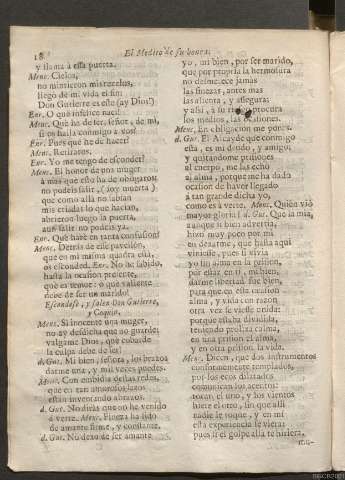 18
El Medico de su honra.
y llama à essa puerta.
Menc. Cielos,
no mintieron mis rezelos,
llegò de mi vida el fin:
Don Gutierre es este (ay Dios!)
Enr. O què infelice nacì!
Menc. Què ha de ser, señor, de mi,
si os halla conmigo à vos?
Enr. Pues què he de hacer?
Menc. Retiraros.
Enr. Yo me tengo de esconder?
Menc. El honor de una muger
à mas que esto ha de obligaros:
no podeis salir, (soy muerta!)
que como allà no sabian
mis criadas lo que hacian,
abrieron luego la puerta,
aun salir no podeis ya.
Enr. Què harè en tanta confusion?
Menc. Detràs de esse pavellon,
que en mi misma quadra està,
os esconded. Enr. No he sabido,
hasta la ocasion presente,
què es temor: ò què valiente
debe de ser un marido!
Escondese, y salen Don Gutierre,
y Coquin.
Menc. Si inocente una muger,
no ay desdicha que no aguarde;
valgame Dios, què cobarde
la culpa debe de ser!
d. Gut. Mi bien, señora, los brazos
darme una, y mil veces puedes.
Menc. Con embidia destas redes,
que en tan amorosos lazos
estàn inventando abrazos.
d. Gut. No diràs que no he venido
à verte. Menc. Fineza ha sido
de amante firme, y constante.
d. Gut. No dexo de ser amante
yo, mi bien, por ser marido,
que por propria la hermosura
no desmerece jamàs
las finezas, antes mas
las alienta, y assegura;
y assi, à su riesgo procura
los medios, las ocasiones.
Menc. En obligacion me pones.
d. Gut. El Alcayde que conmigo
està, es mi deudo, y amigo;
y quitandome prisiones
el cuerpo, me las echò
al alma, porque me ha dado
ocasion de haver llegado
à tan grande dicha yo,
como es à verte. Menc. Quien viò
mayor gloria! d. Gut. Que la mia,
aunque si bien advertia,
hizo muy poco por mi
en dexarme, que hasta aqui
viniesse, pues si vivia
yo sin alma en la prision,
por estàr en ti, mi bien,
darme libertad fue bien,
para que en esta ocasion
alma, y vida con razon
otra vez se viesse unida:
porque estaba dividida,
teniendo prolixa calma,
en una prision el alma,
y en otra prision la vida.
Menc. Dicen, que dos instrumentos
conformemente templados,
por los ecos dilatados
comunican los acentos:
tocan el uno, y los vientos
hiere el otro, sin que alli
nadie le toque, y en mi
esta experiencia se viera;
pues si el golpe allà te hiriera,